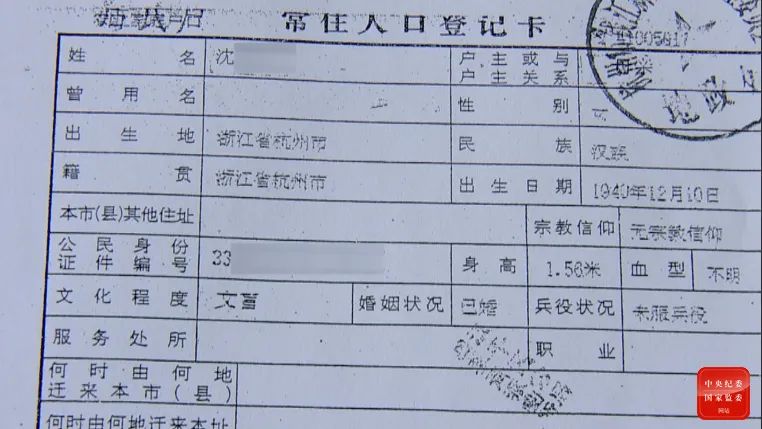 常住人口登记卡
姓名 沈 户主或与户主关系
曾用名 性别
出生地 浙江省杭州市 民族 汉族
籍贯 浙江省杭州市 出生日期 1940年12月10日
本市(县)其他住址 宗教信仰 无宗教信仰
公民身份证件编号 33 身高 1.56米 血型 不明
文化程度 文盲 婚姻状况 已婚 兵役状况 未服兵役
服务处所 职业
何时由何地迁来本市(县)
何时由何地迁来本址
中央纪委
国家监委
网站